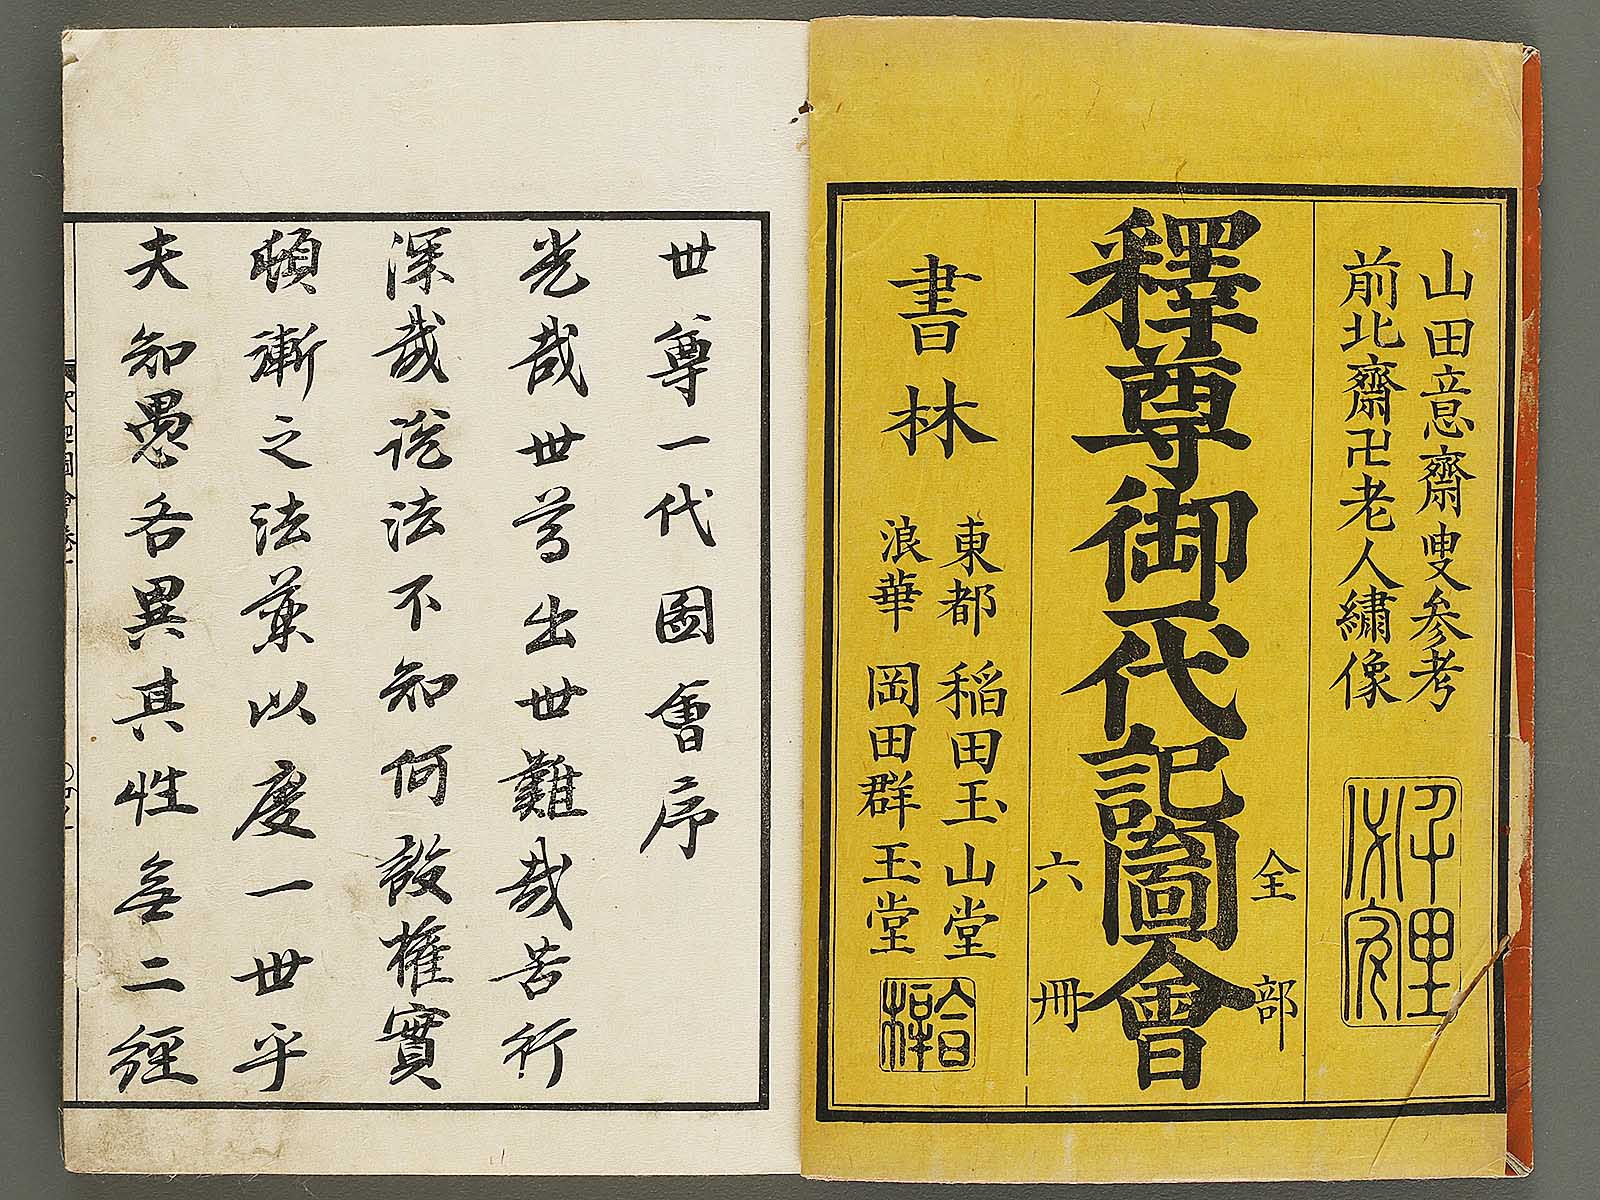 山田意齋叟参考
前北齋卍老人繡像
全部
釋尊御一代記圖會
六冊
書林
東都 稲田玉山堂
浪華 岡田群玉堂
世尊一代圖會序
光哉世尊出世難哉苦行
深哉説法不知何設權實
頓漸之法藥以度一世乎
夫知愚各異其性無二經